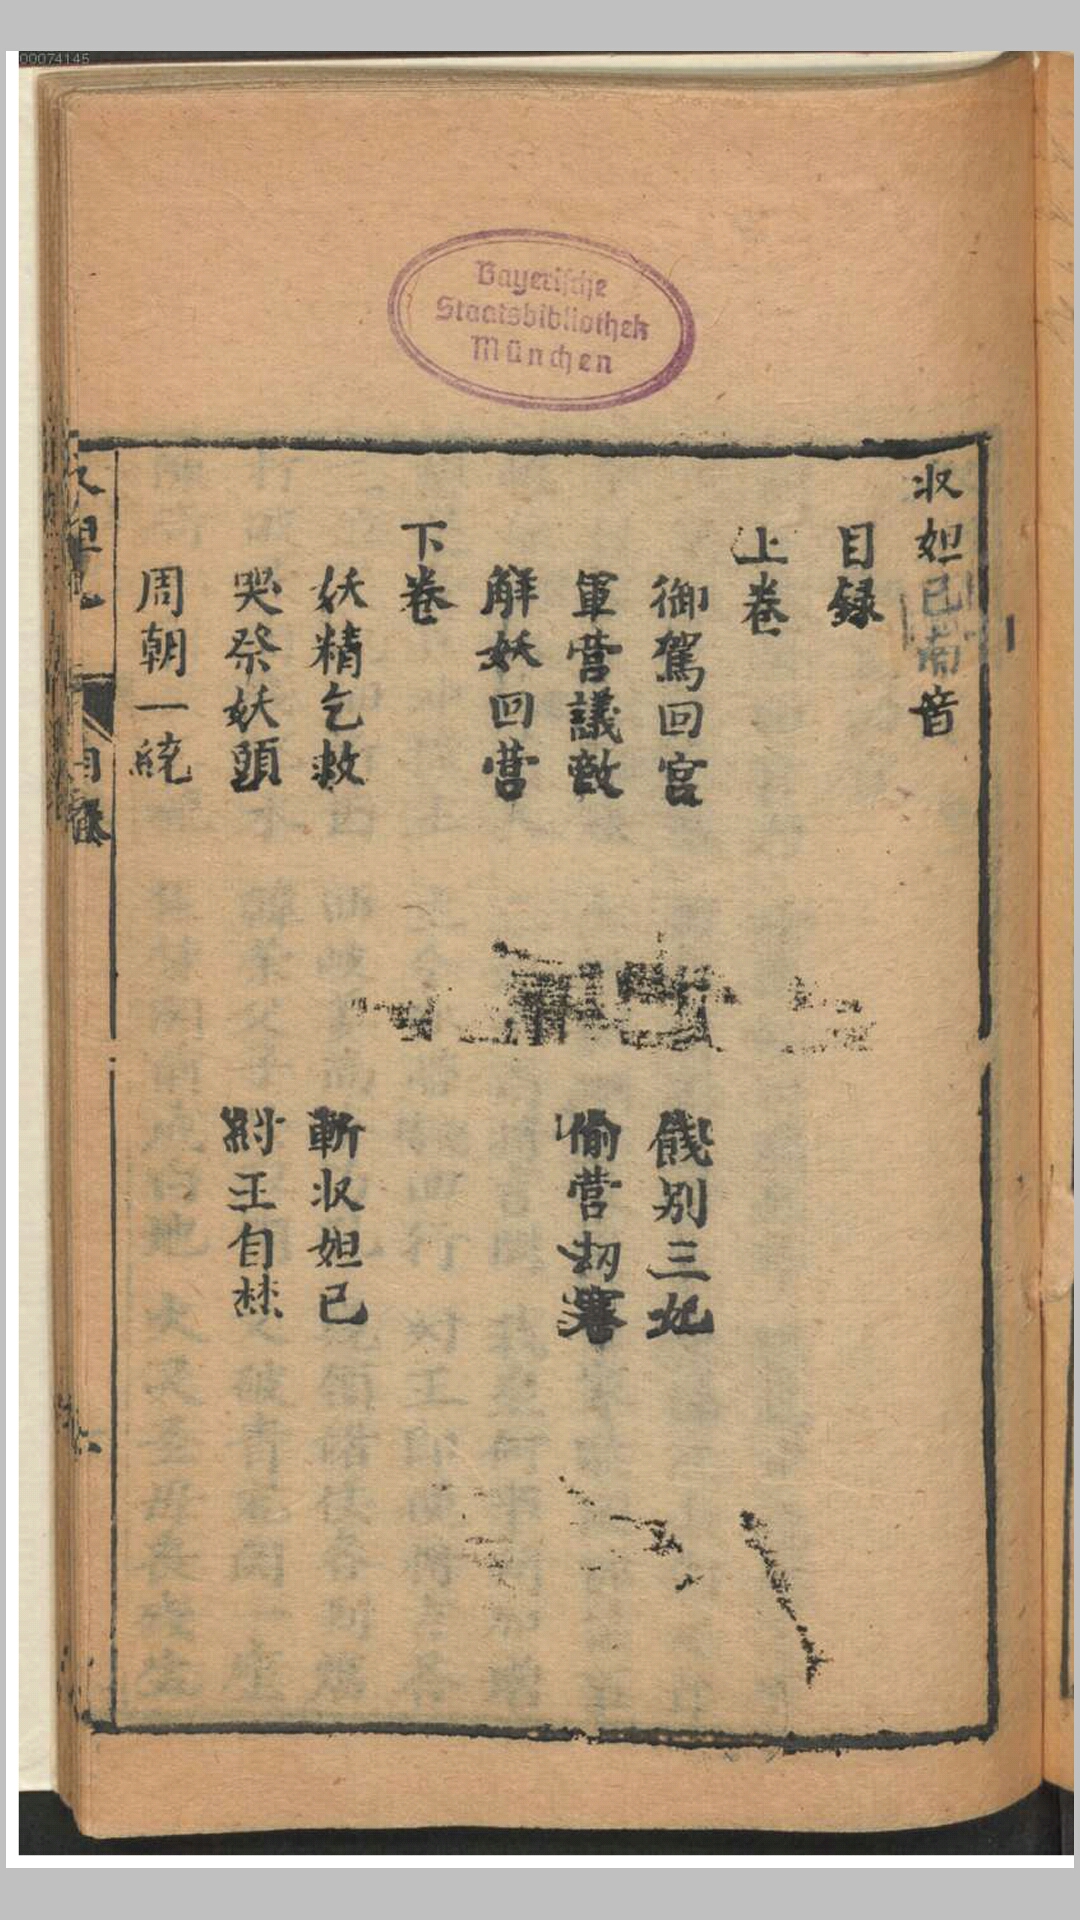 00074145
Bayerische
Staatsbibliothek
München
収妲己南音
目録
上卷
御駕回宮 餞別三妃
軍营議敵 偷营劫寨
解妖回营
下卷
妖精乞救 斬収妲己
哭祭妖頭 紂王自焚
周朝一統
目錄